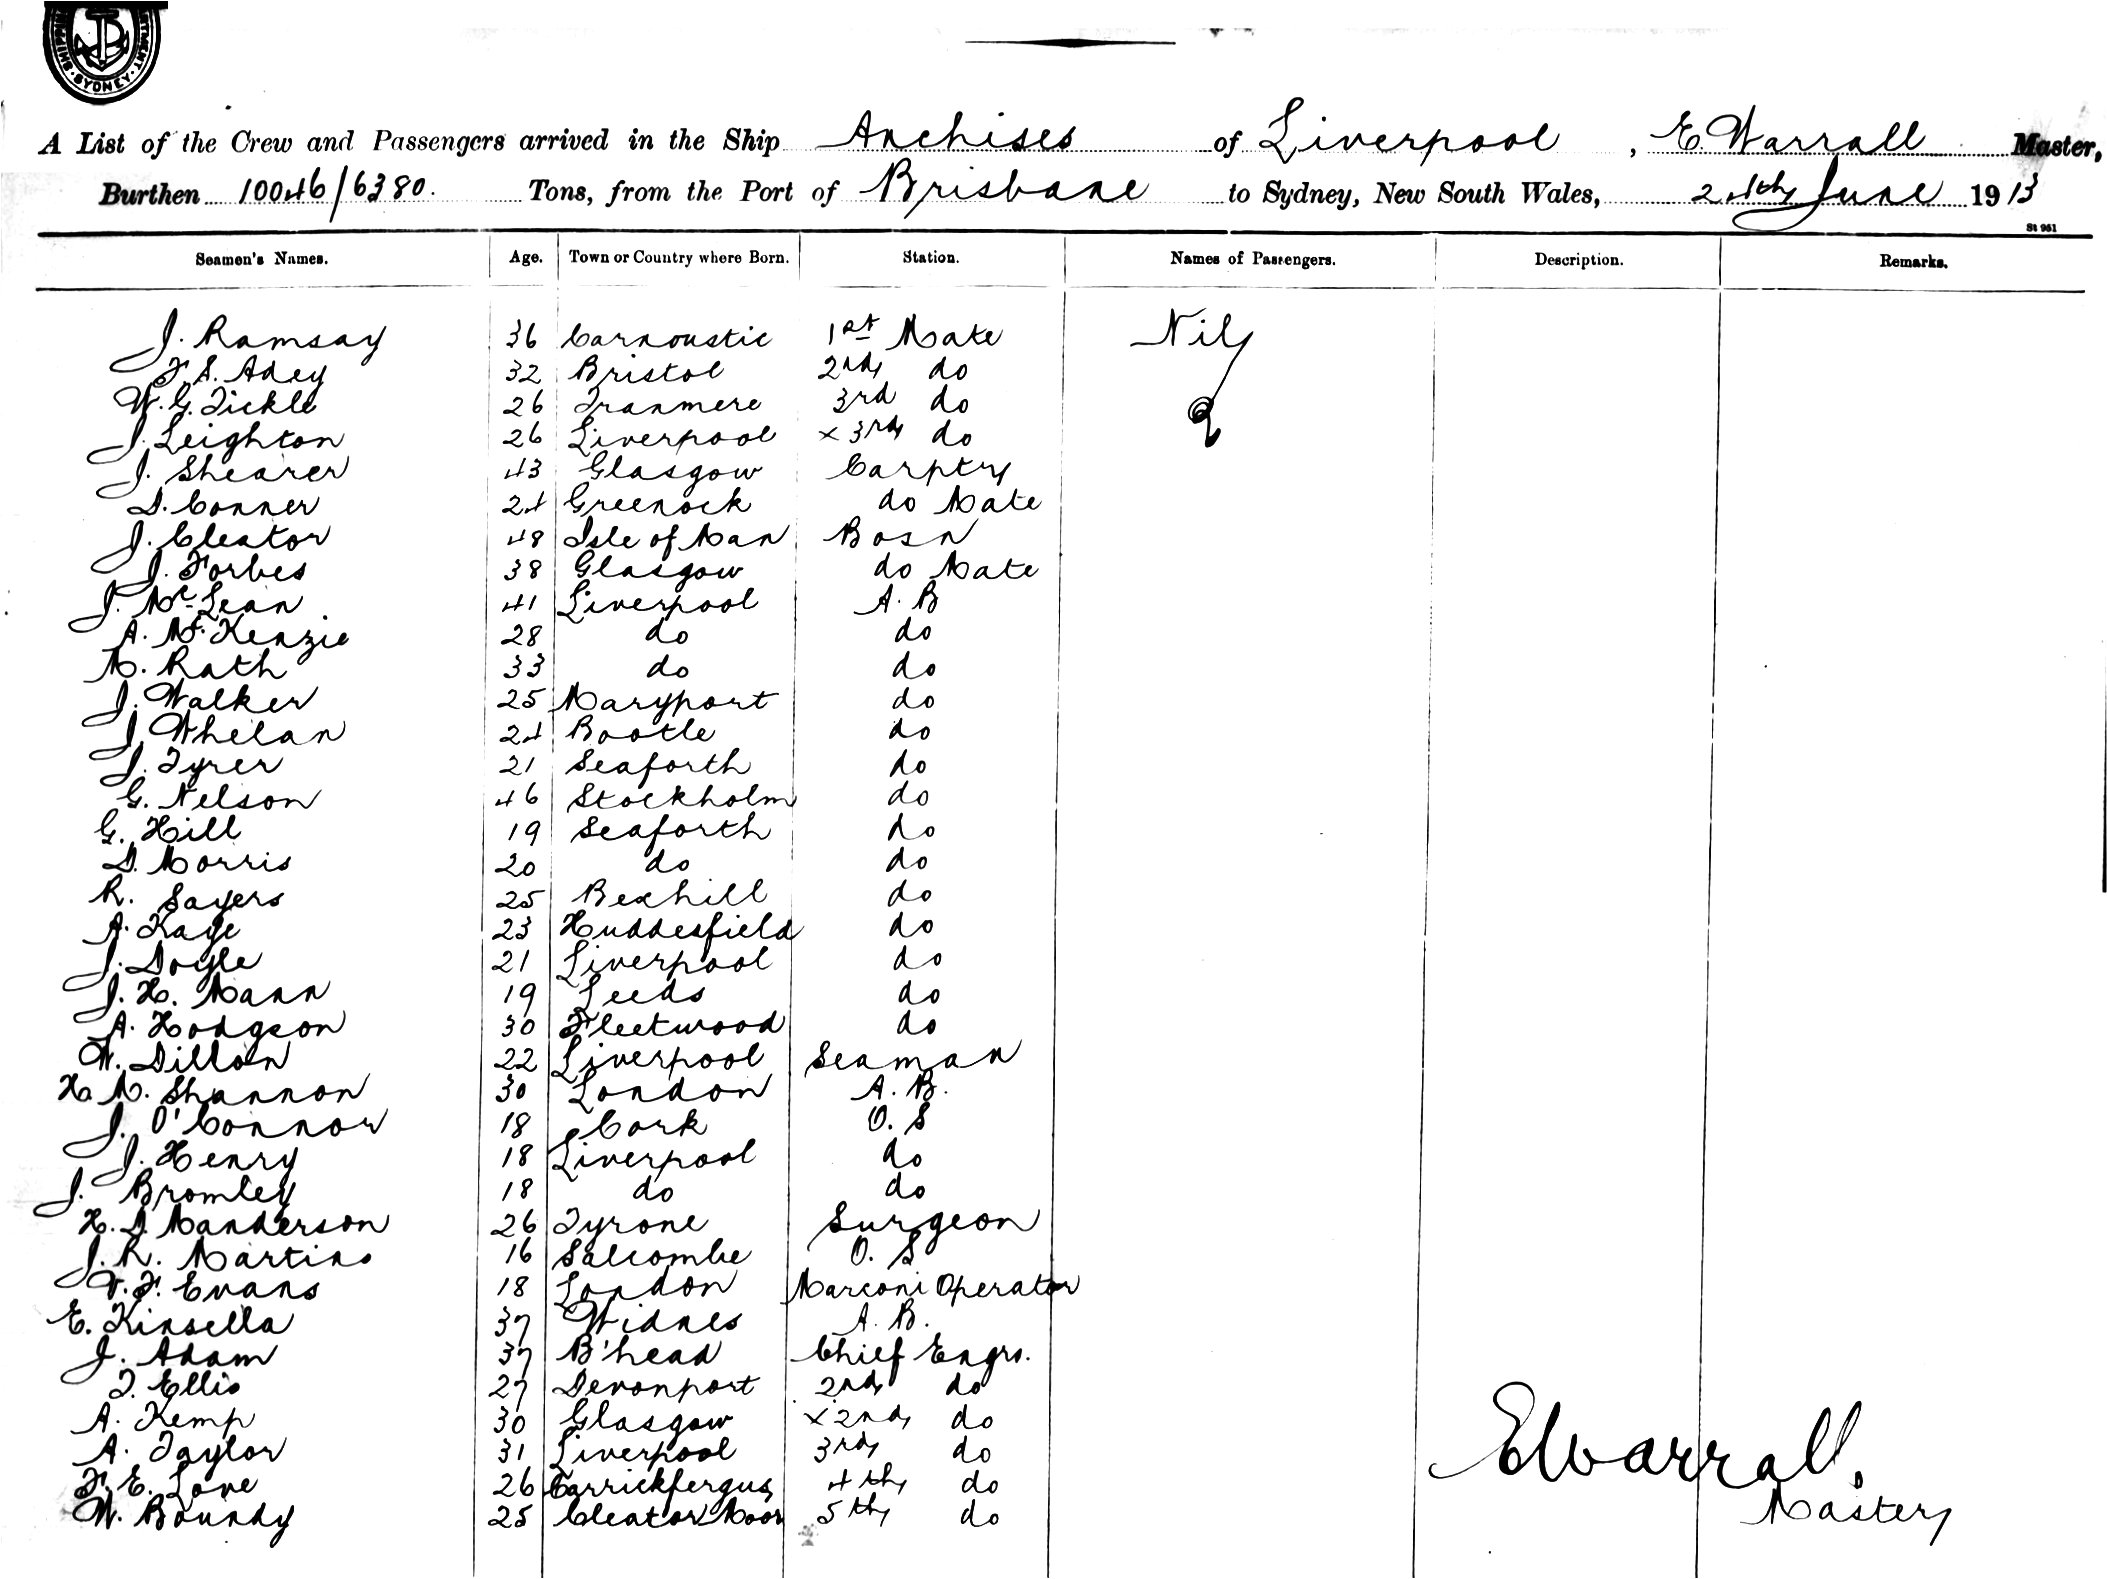 SHIPPING DEPARTMENT · SYDNEY ·
A List of the Crew and Passengers arrived in the Ship Anchises of Liverpool, E Warrall Master,
Burthen 10046/6380. Tons, from the Port of Brisbane to Sydney, New South Wales, 24th June 1913
St 961
Seamen's Names. Age. Town or Country where Born. Station. Names of Passengers. Description. Remarks.
J. Ramsay 36 Carnoustie 1st Mate Nil
F. S. Adey 32 Bristol 2nd do
W. G. Tickle 26 Tranmere 3rd do
J. Leighton 26 Liverpool x 3rd do
J. Shearer 43 Glasgow Carptr
D. Conner 24 Greenock do Mate
J. Cleator 48 Isle of Man Bosn
J. Forbes 38 Glasgow do Mate
J. McLean 41 Liverpool A. B
A. McKenzie 28 do do
M. Rath 33 do do
J. Walker 25 Maryport do
J. Whelan 24 Bootle do
J. Tyrer 21 Seaforth do
G. Nelson 46 Stockholm do
G. Hill 19 Seaforth do
D. Morris 20 do do
R. Sayers 25 Bexhill do
A. Kaye 23 Huddesfield do
J. Doyle 21 Liverpool do
J. H. Mann 19 Leeds do
A. Hodgson 30 Fleetwood do
W. Dillon 22 Liverpool Seaman
H. M. Shannon 30 London A. B.
J. O'Connor 18 Cork O. S
J. Henry 18 Liverpool do
J. Bromley 18 do do
H. D. Manderson 26 Tyrone Surgeon
J. R. Martins 16 Salcombe O. S
V. F. Evans 18 London Marconi Operator
E. Kinsella 37 Widnes A. B.
J. Adam 37 B'head Chief Engr.
T. Ellis 27 Devonport 2nd do
A. Kemp 30 Glasgow x 2nd do
A. Taylor 31 Liverpool 3rd do
F. E. Lowe 26 Carrickfergus 4th do
W. Boundy 25 Cleator Moor 5th do
E Warrall.
Master